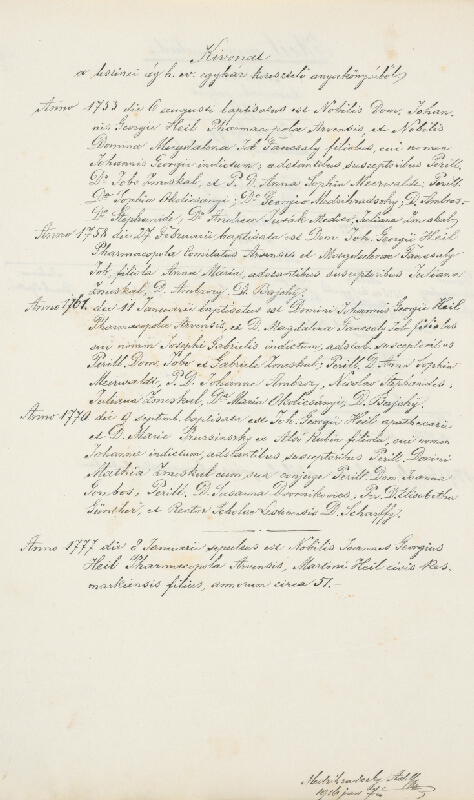 Kivonat
a leszinei ág. h. ev. egyház keresztelő anyakönyvéből,
Anno 1753 die 6 augusti baptisatus est Nobilis Dom. Johan-
nis Georgii Heil Pharmacopolae Arvensis, et Nobilis
Domina Magdalena Joh filiolus, cui nomen
Johannis Georgii indictum; adstantibus susceptoribus Perill.
D. Jobo Zmeskal, et P. D. Anna Sophia Meerwaldt; Perill.
Dna Sophia Okolicsanyi; D. Georgio Medrihradszky; D. Ambros-
D. Stephanide; D. Andrea Juliana Zmeskal;
Anno 1758 die 27 Februarii baptisata est Dom. Joh. Georgii Heil
Pharmacopola Comitatus Arvensis et Magdalena
Joh. filiola Anna Maria, adstantibus susceptoribus Juliana
Zmeskal, D. Ambrozy, D. Bajchy.
Anno 1761 die 11 Januarii baptisatus est Domini Johannis Georgii Heil
Pharmacopola Arvensis, et D. Magdalena Joh. filiolus
cui nomen Josephi Gabrielis indictum, adstab. susceptoribus
Perill. Dom. Jobo et Gabriele Zmeskal; Perill. D. Anna Sophia
Meerwaldt, P. D. Johanne Ambrozy, Nicolao Stephanides,
Juliana Zmeskal, Dna Maria Okolicsanyi, D. Bajchy.
Anno 1770 die 9 septemb. baptisata est Joh. Georgii Heil apothecarii
et D. Maria Pruzsinszky ex Alsó Kubin filiola, cui nomen
Johanna indictum, adstantibus susceptoribus Perill. Domini
Mathia Zmeskal cum sua conjuge Perill. Dom. Joanna
Gombos, Perill. D. Susanna Dvornikovics, D. Elisabetha
Günther, et Rector Scholae D. Scharffy.
Anno 1777 die 2 Januarii sepultus est Nobilis Joannes Georgius
Heil Pharmacopola Arvensis, Martini Heil civis Kes-
markiensis filius, annorum circa 51.-